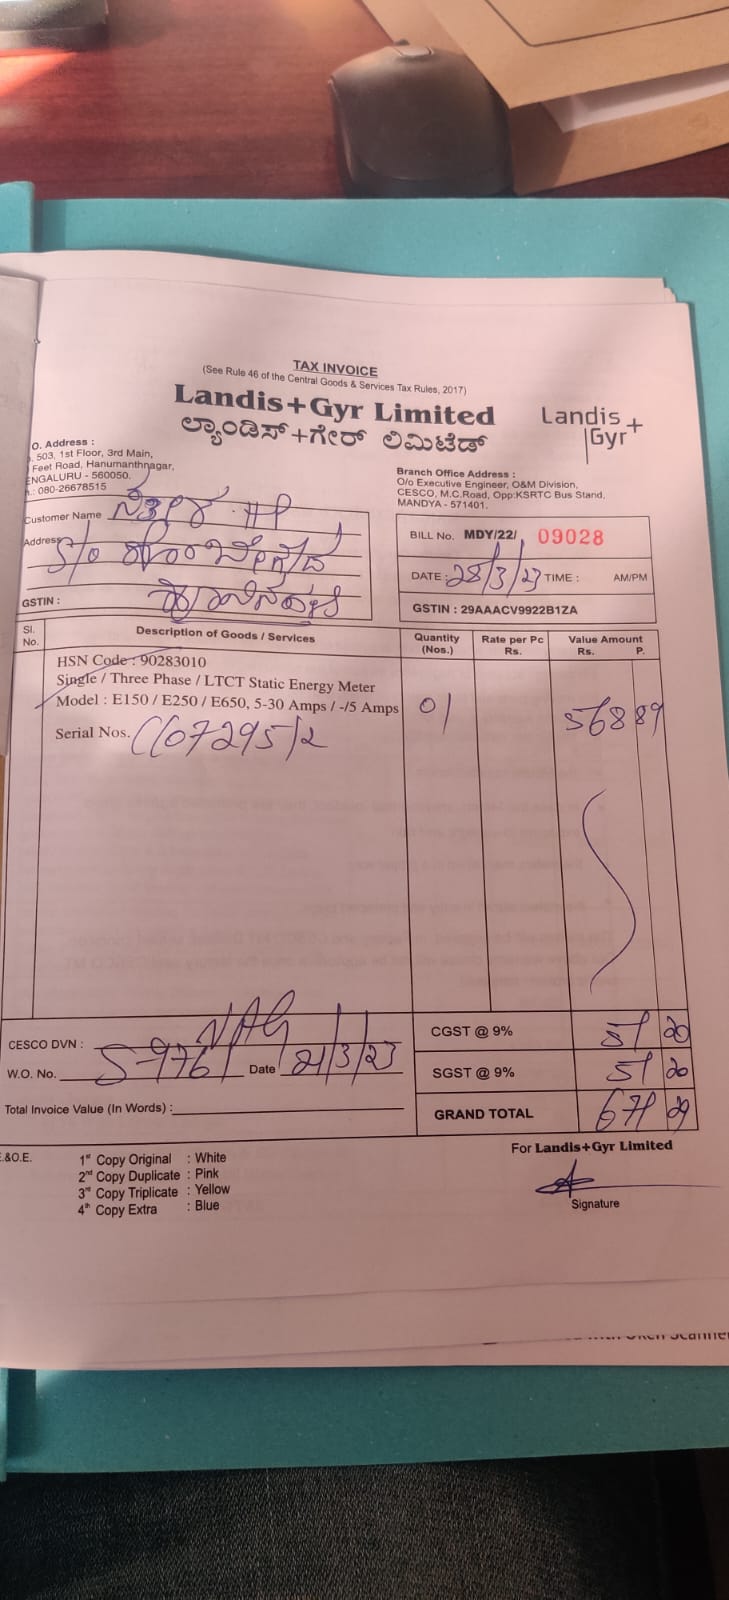 TAX INVOICE
(See Rule 46 of the Central Goods & Services Tax Rules, 2017)
Landis+Gyr Limited
ಲ್ಯಾಂಡಿಸ್+ಗೇರ್ ಲಿಮಿಟೆಡ್
Landis+
Gyr
O. Address :
503, 1st Floor, 3rd Main,
Feet Road, Hanumanthnagar,
ENGALURU - 560050.
080-26678515
Branch Office Address :
O/o Executive Engineer, O&M Division,
CESCO, M.C.Road, Opp:KSRTC Bus Stand,
MANDYA - 571401.
Customer Name
Address S/o
GSTIN :
BILL No. MDY/22/ 09028
DATE : 28/3/23 TIME : AM/PM
GSTIN : 29AAACV9922B1ZA
Sl. No. Description of Goods / Services Quantity (Nos.) Rate per Pc Rs. Value Amount Rs. P.
HSN Code : 90283010
Single / Three Phase / LTCT Static Energy Meter
Model : E150 / E250 / E650, 5-30 Amps / -/5 Amps 01 568 89
Serial Nos.
CESCO DVN : NAG
W.O. No. Date 21/3/23
Total Invoice Value (In Words) :
CGST @ 9% 51 20
SGST @ 9% 51 20
GRAND TOTAL 671 29
E.&O.E.
1st Copy Original : White
2nd Copy Duplicate : Pink
3rd Copy Triplicate : Yellow
4th Copy Extra : Blue
For Landis+Gyr Limited
Signature